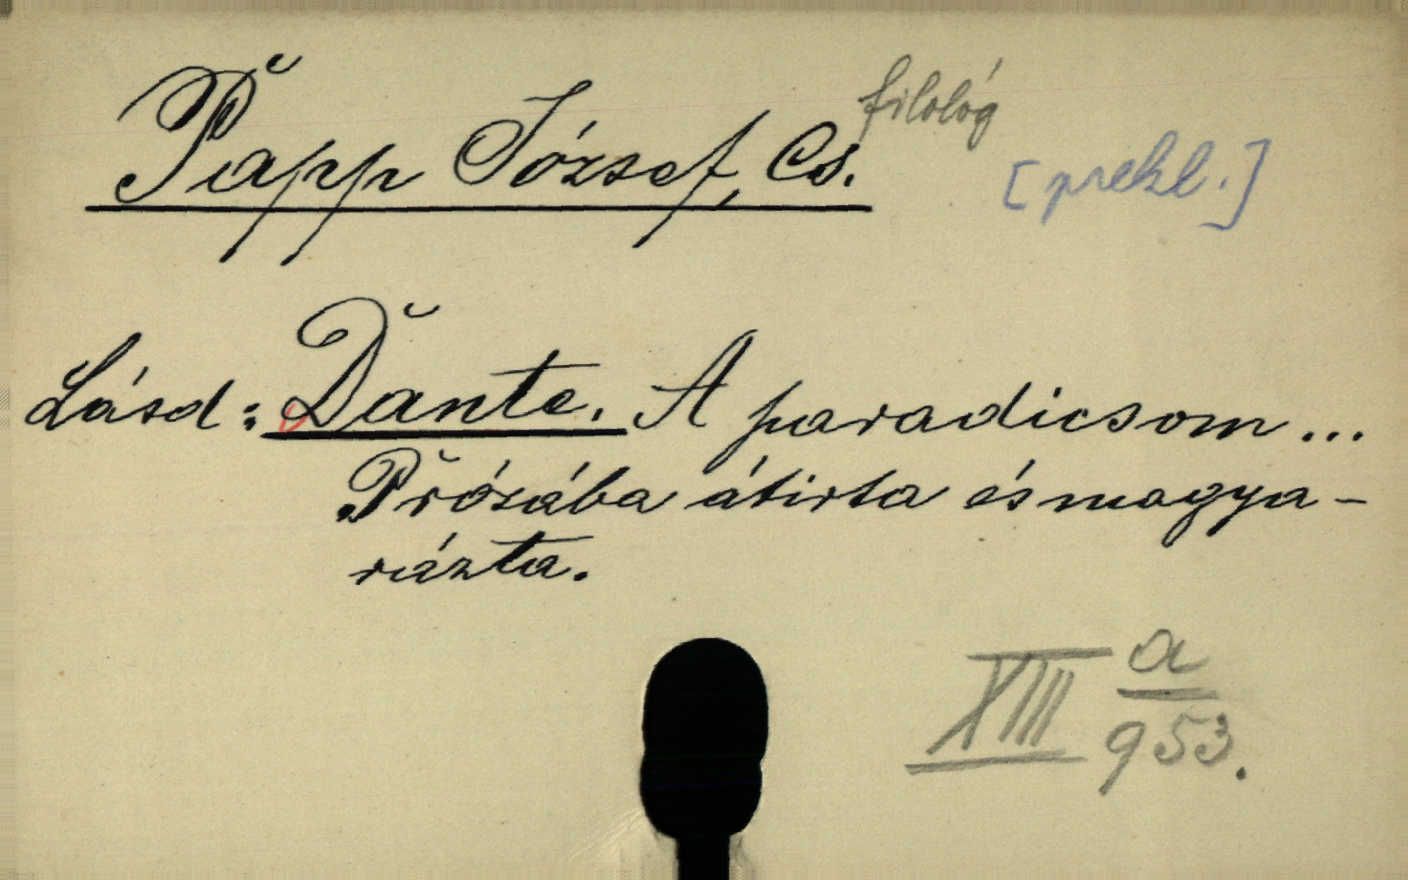 Papp József, Cs. filológ
[prekl.]
Lásd: Dante. A paradicsom...
Prózába átirta és magya-
rázta.
XIII a
953.